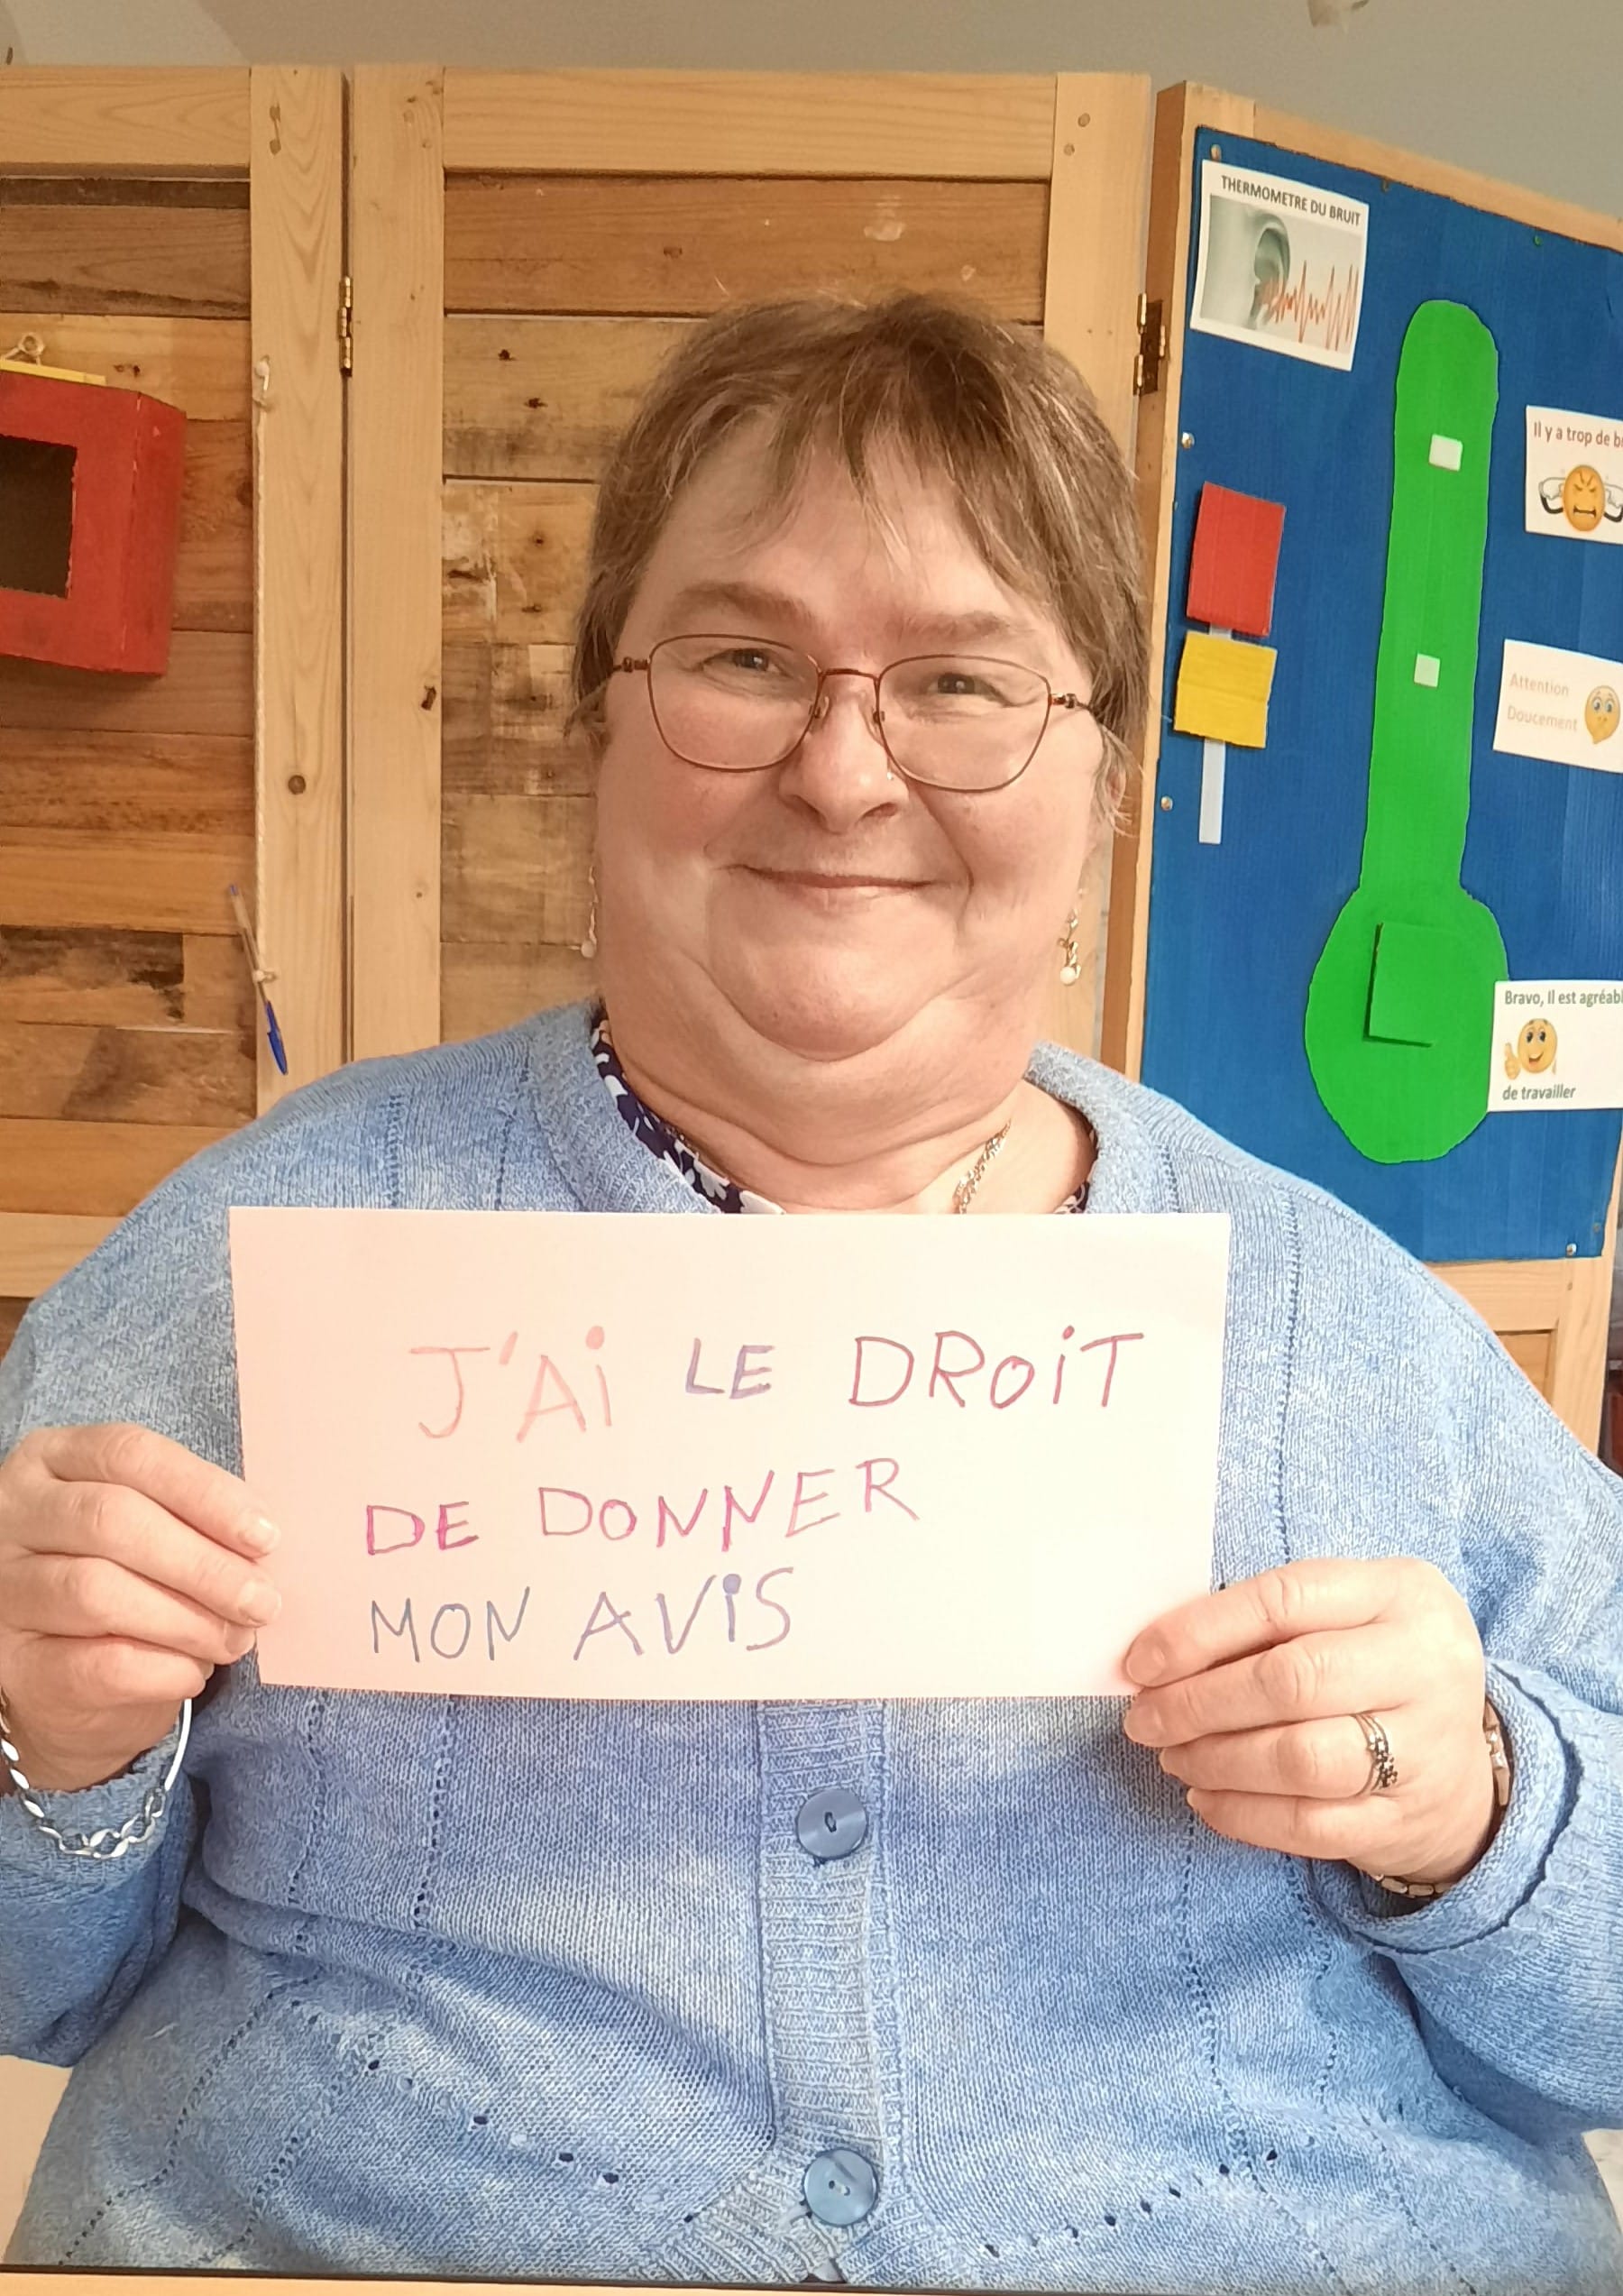 THERMOMETRE DU BRUIT
Il y a trop de
Attention
Doucement
Bravo, Il est
de travailler
J'Ai LE DROiT
DE DONNER
MON AViS